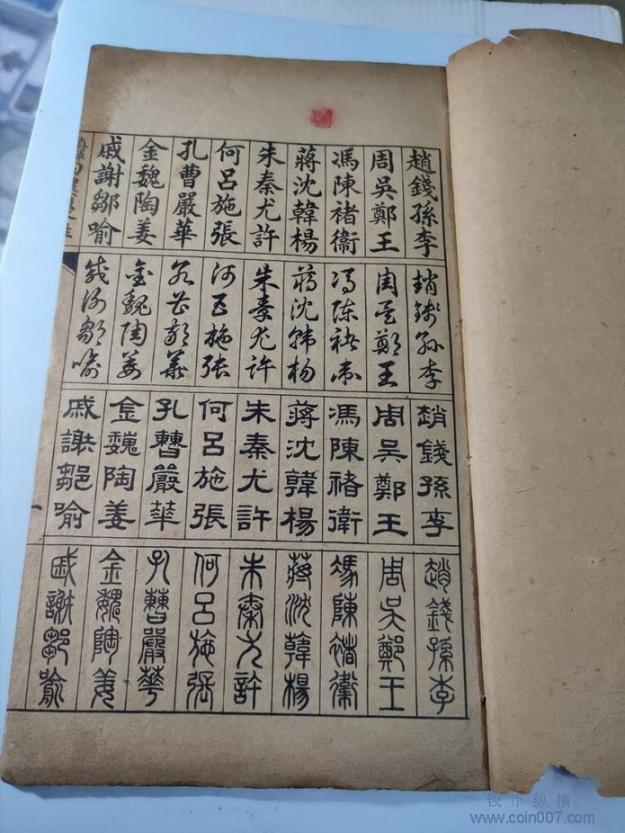 趙錢孫李
周吳鄭王
馮陳褚衛
蔣沈韓楊
朱秦尤許
何呂施張
孔曹嚴華
金魏陶姜
戚謝鄒喻
趙錢孫李
周吳鄭王
馮陳褚衛
蔣沈韓楊
朱秦尤許
何呂施張
孔曹嚴華
金魏陶姜
戚謝鄒喻
趙錢孫李
周吳鄭王
馮陳褚衛
蔣沈韓楊
朱秦尤許
何呂施張
孔曹嚴華
金魏陶姜
戚謝鄒喻
趙錢孫李
周吳鄭王
馮陳褚衛
蔣沈韓楊
朱秦尤許
何呂施張
孔曹嚴華
金魏陶姜
戚謝鄒喻
钱币纵横
www.coin007.com